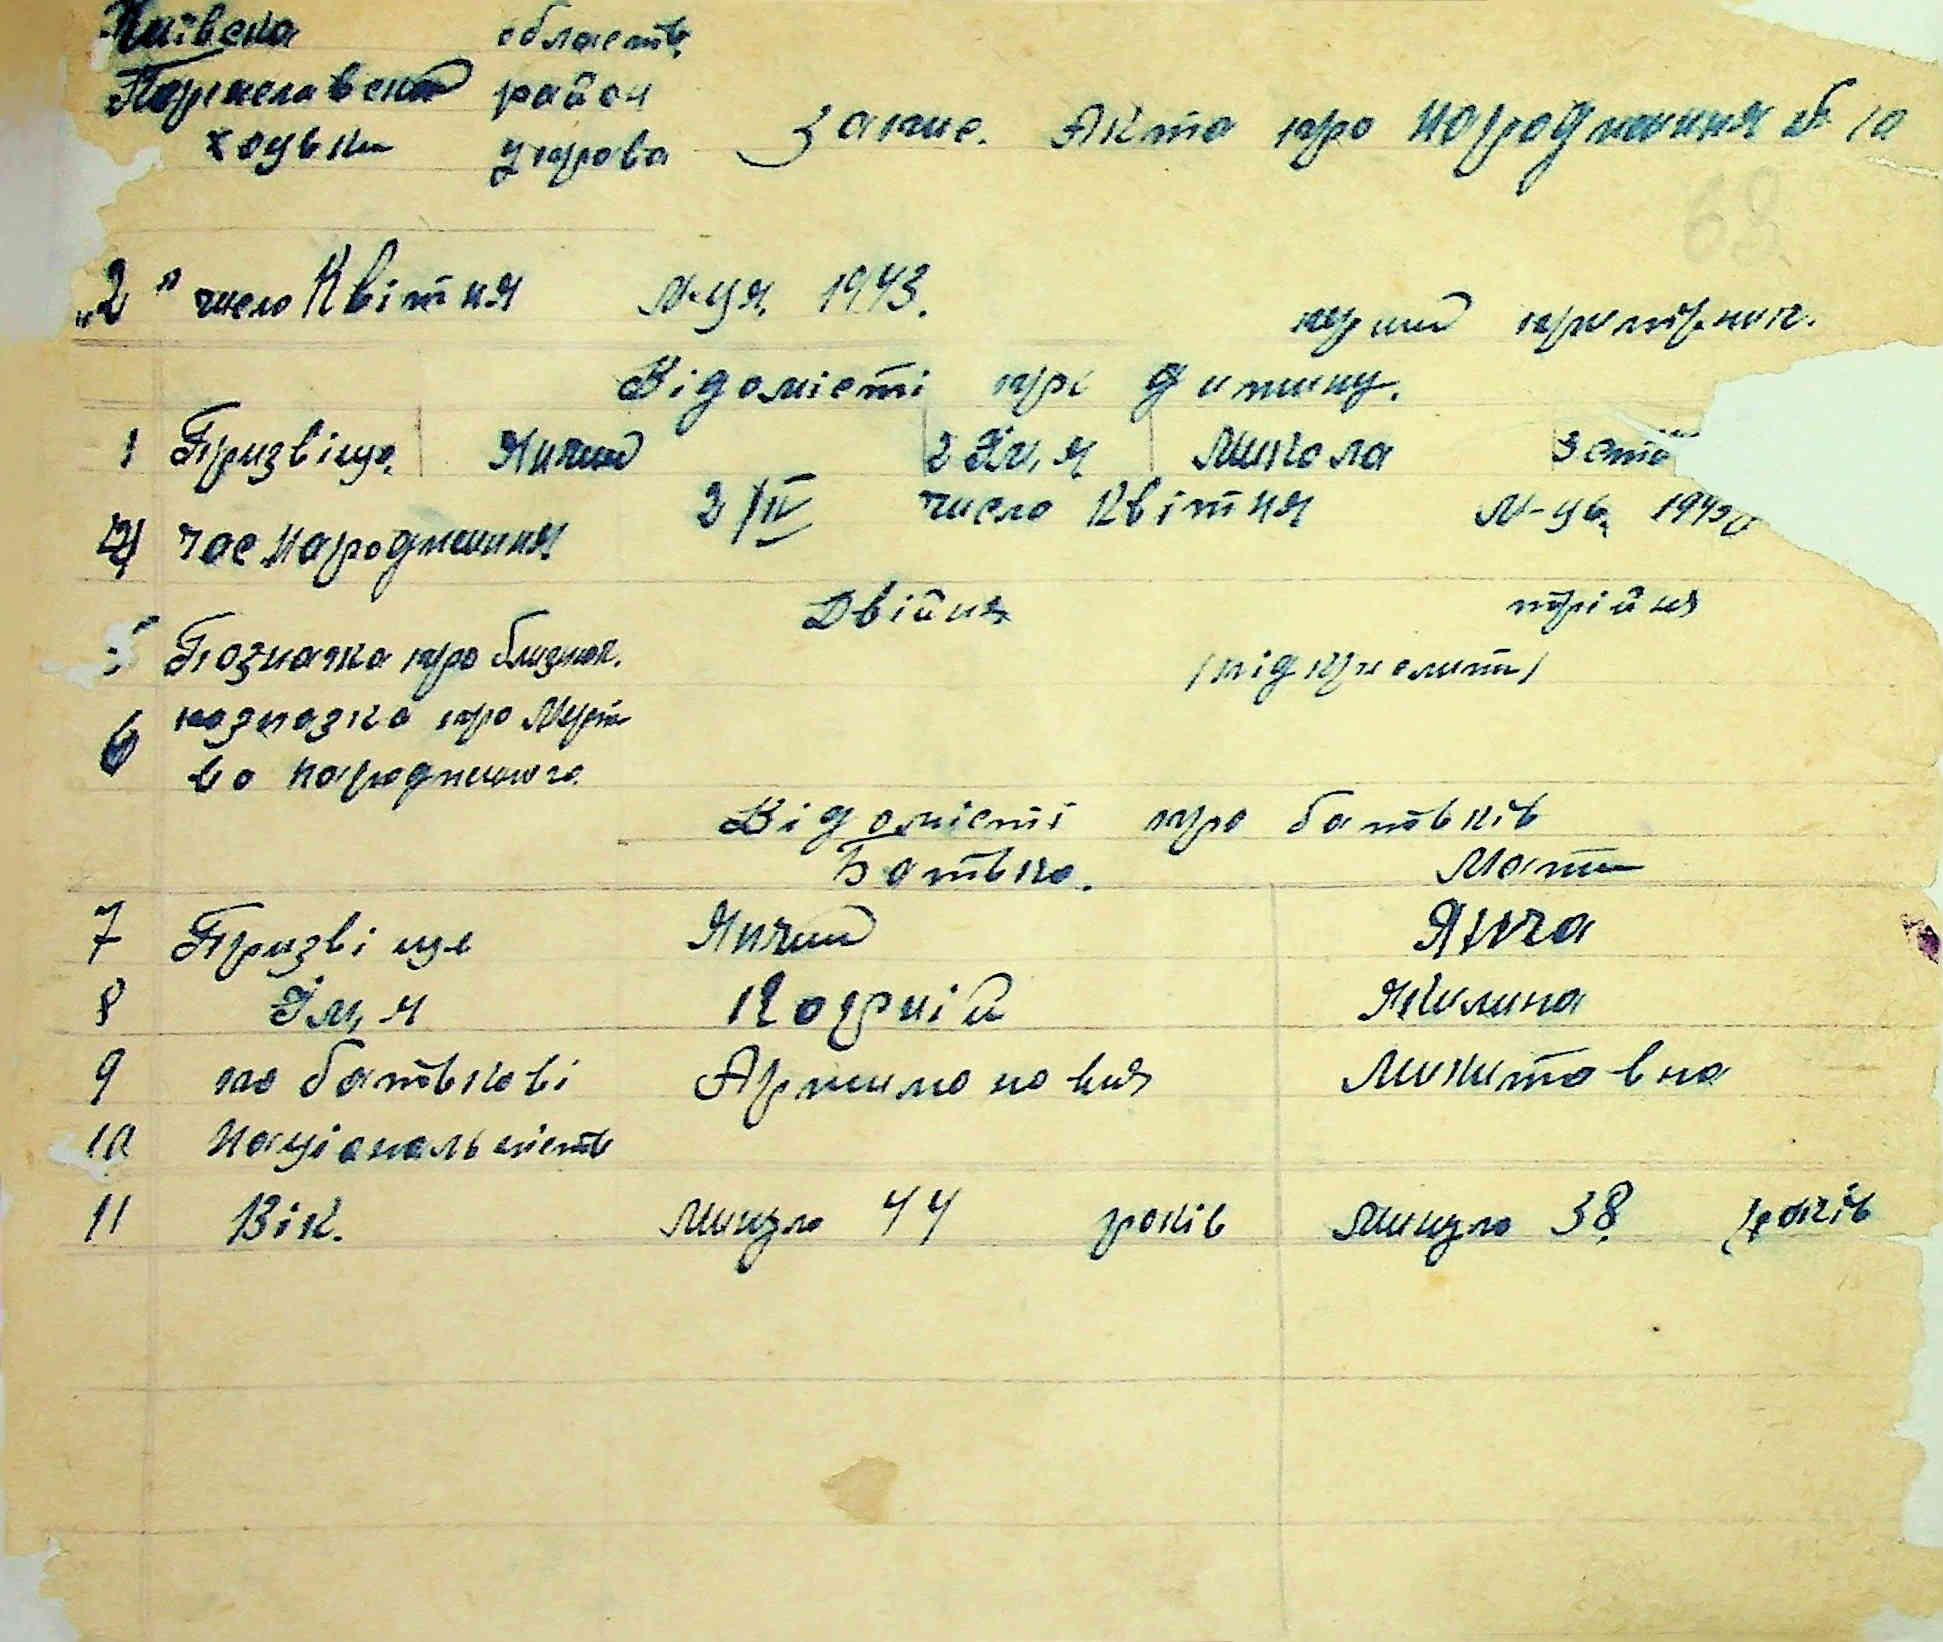 Київска область
Переяславский район
Хоцьки управа Запис. Акта про народження № 10
68
„2" число Квітня М-ця 1943.
перший примірник.
Відомісті про дитину.
1 Призвіще Янчий 2 Їм,я Микола 3 Ста
4 Час народження 2/IV число Квітня М-ць 1943
Двійня трійня
5 Позначка про близнят. /підкреслит/
6 позначка про Мерт
во народженого
Відомісті про батьків
Батько. Мати
7 Призвіще Янчий Янча
8 Їм,я Кодрній Якилина
9 по батькові Архипоновия Микитовна
10 Національність
11 Вік. Минуло 44 років Минуло 38 років